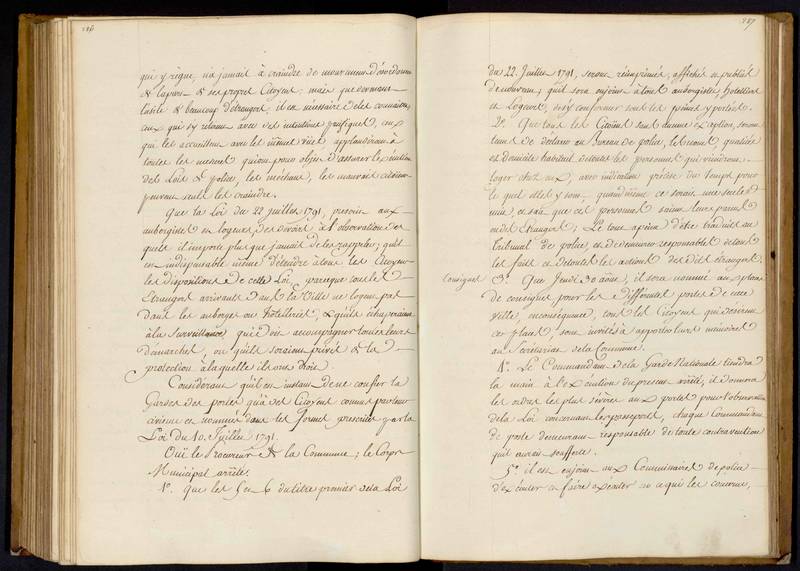 286
qui y règne, n'a jamais à craindre de mouvemens désordonnés
& la part de ses propres Citoyens, mais que donnant
l'asile à beaucoup d'étrangers, il est nécessaire de les connaitre,
ceux qui s'y retirent avec des intentions pacifiques, ceux
qui les accueillent avec les mêmes vües applaudiront à
toutes les mesures qui ont pour objet d'assurer l'exécution
des Loix de police, les méchants, les mauvais citoïens
peuvent seuls les craindre.
Que la Loi du 22 juillet 1791, prescrit aux
aubergistes et logeurs, des devoirs à l'observation des
quels il importe plus que jamais de les rappeller; qu'il
est indispensable même d'étendre à tous les Citoyens
les dispositions de cette Loi, parceque tous les
Etrangers arrivants dans la Ville ne logent pas
dans les auberges ou hotelleries, & qu'ils échaperaient
à la Surveillance qui doit accompagner toutes leurs
démarches, ou qu'ils seraient privés de la
protection à laquelle ils ont droit.
Considérant qu'il est instant de ne confier la
Garde des portes qu'à des Citoyens connus par leur
civisme et nommés dans les formes prescrites par la
Loi du 10 Juillet 1791.
Oui le Procureur de la Commune; le Corps
Municipal arrête.
1º. Que les 5 et 6 du titre premier de la Loi
287
du 22 Juillet 1791, seront réimprimés, affichés et publiés
de nouveau; qu'il sera enjoint à tous aubergistes, hoteliers
et Logeurs, de s'y conformer sous les peines y portées.
2º. Que tous les Citoïens sans aucune exception, seront
tenus de déclarer au Bureau de police, les noms, qualités
et domicile habituel de toutes les personnes qui viendront
loger chez eux, avec indication précise du temps pour
le quel elles y sont, quand même ce serait une seule
nuit, et soit que ces personnes soient leurs parents
ou des Etrangers; Le tout à peine d'être traduits au
Tribunal de police, et de demeurer responsables de tous
les faits et de toutes les actions des dits étrangers.
Consignes
3º. Que Jeudi 30 août, il sera nommé aux places
de consignes pour les différentes portes de cette
Ville, en conséquence, tous les Citoyens qui désirent
ces places, sont invités à apporter leurs mémoires
au Secrétariat de la Commune.
4º. Le Commandant de la Garde Nationale tiendra
la main à l'exécution du présent arrêté; il donnera
les ordres les plus sévères aux portes pour l'observation
de la Loi concernant les passeports, chaque Commandant
de poste demeurant responsable de toute contravention
qu'il aurait soufferte.
5º. il est enjoint aux Commissaires de police
d'exécuter et faire exécuter en ce qui les concerne,